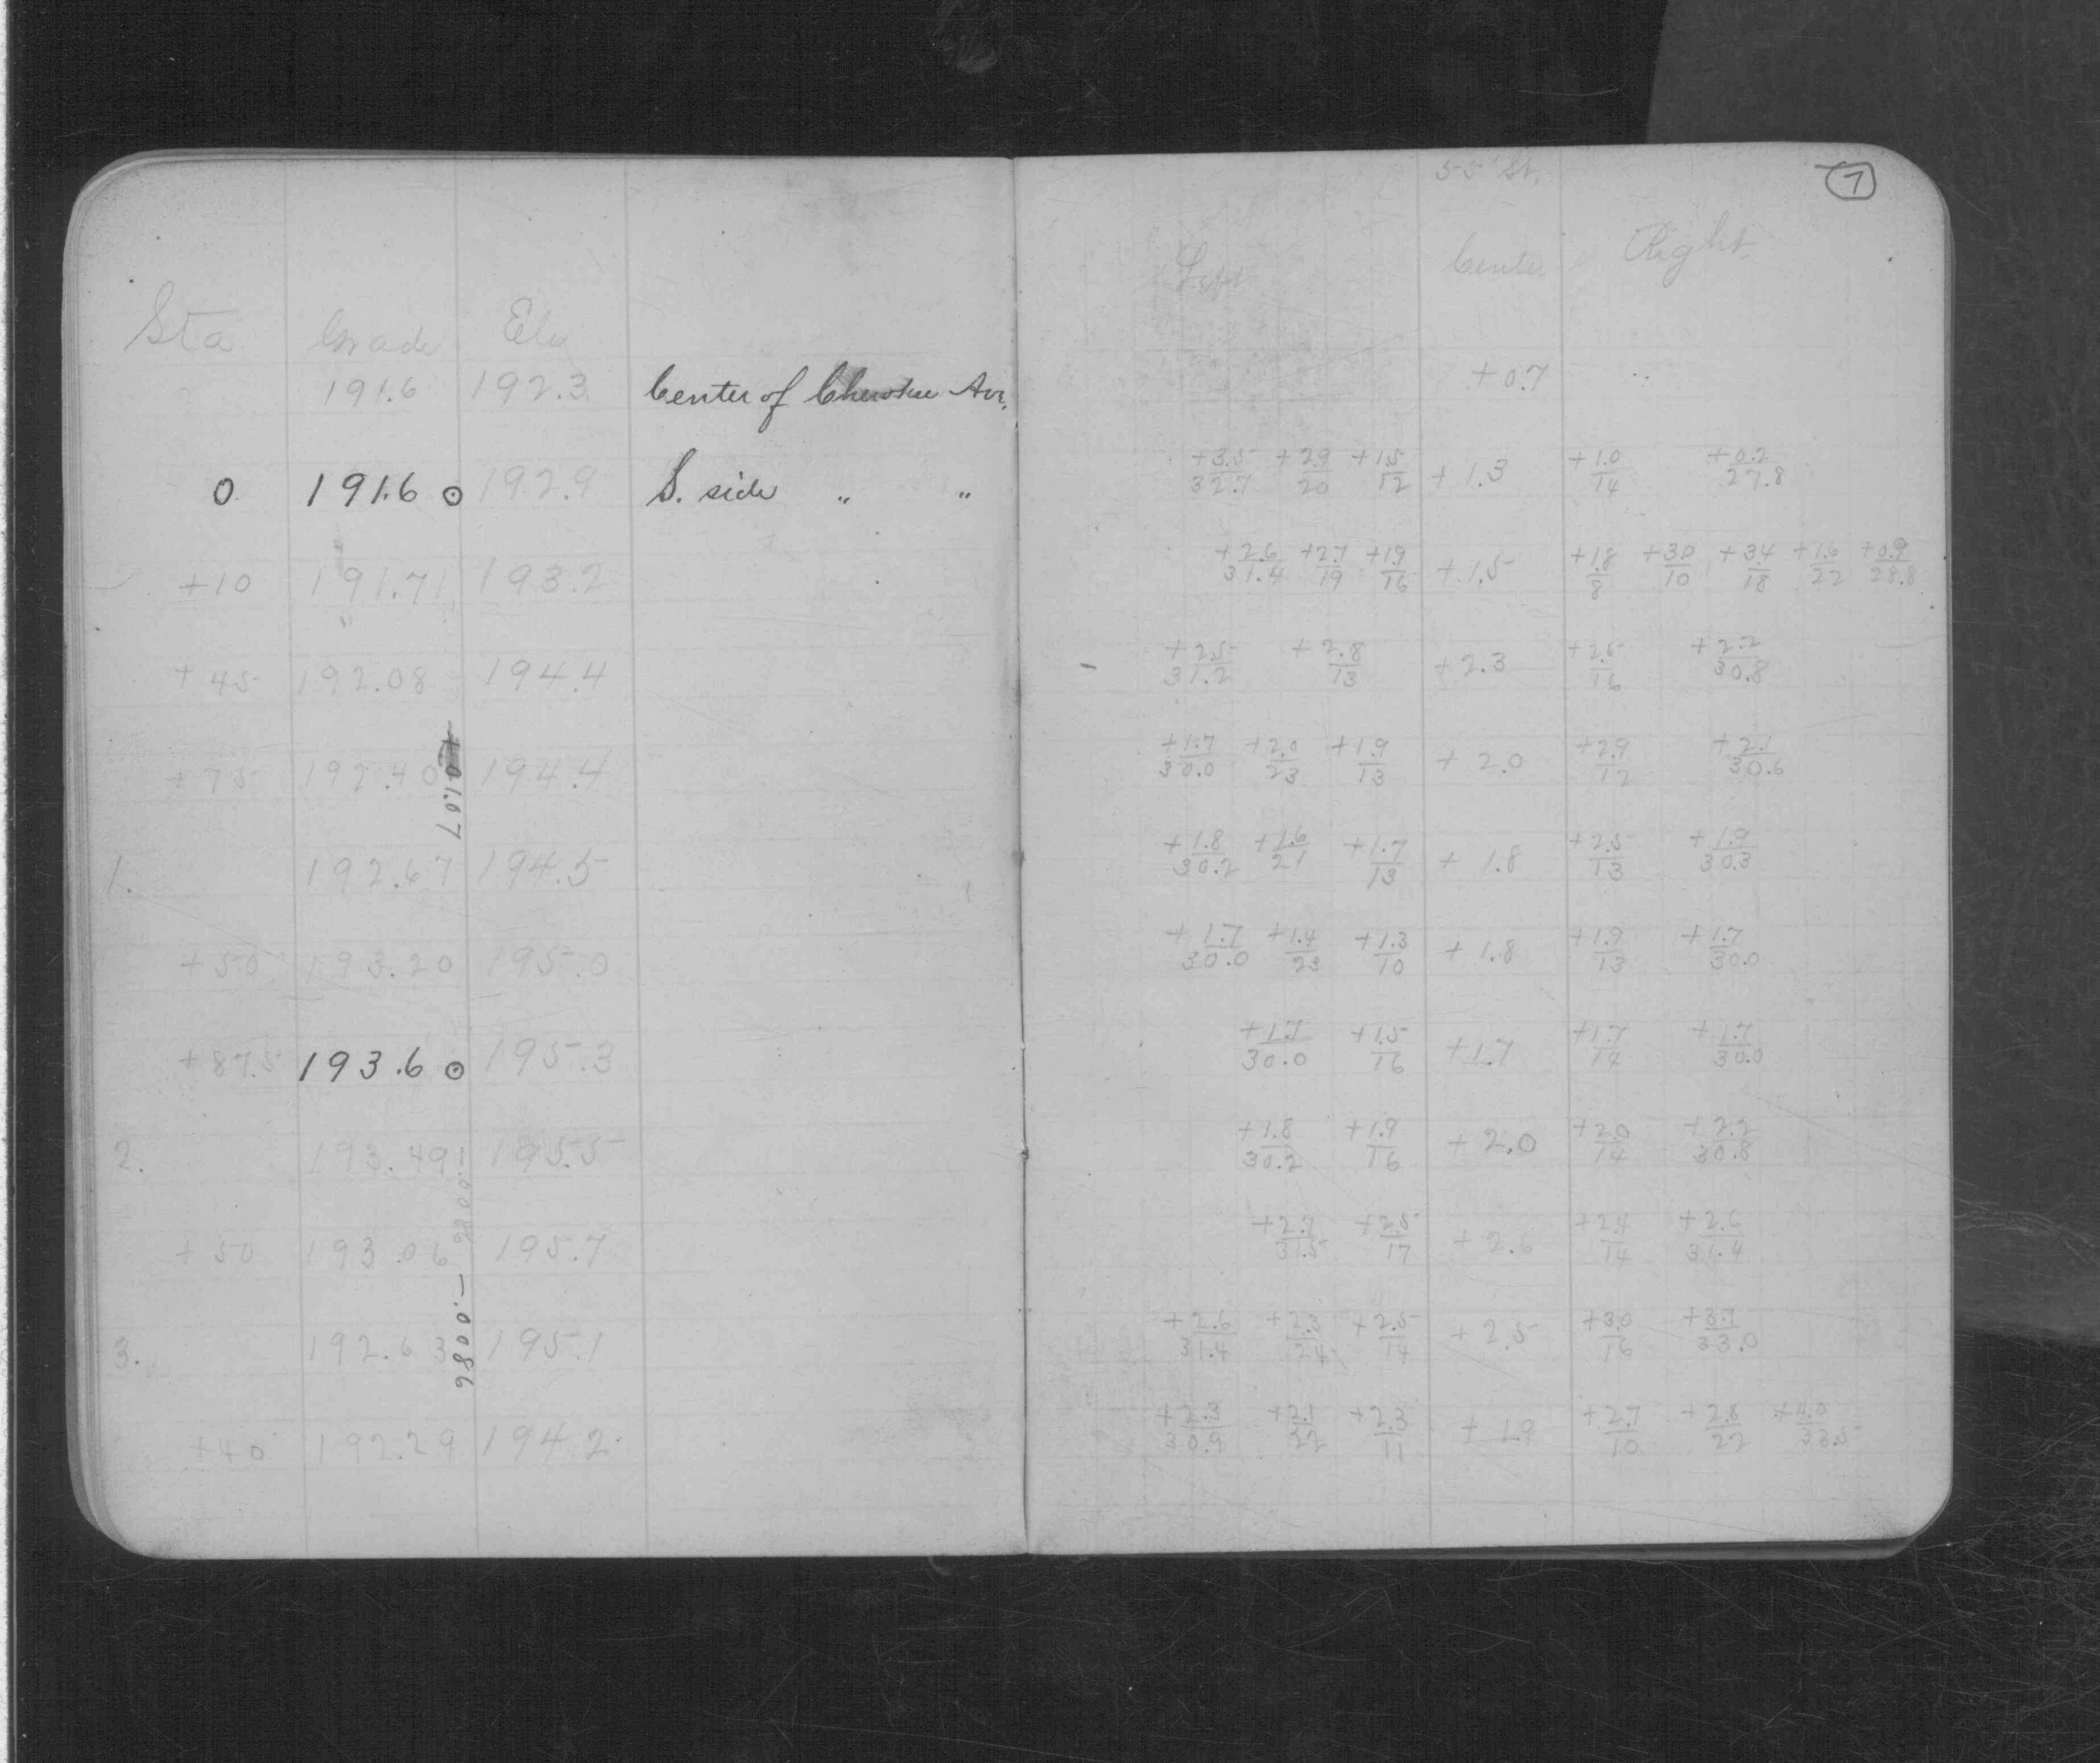 55' St.
7
Left Center Right
Sta Grade Elev
191.6 192.3 Center of Cherokee Ave. +0.7
0 191.60 192.9 S. side " " +3.5/32.7 +2.9/20 +1.5/12 +1.3 +1.0/14 +0.2/27.8
+10 191.71 193.2 +2.6/31.4 +2.7/19 +1.9/16 +1.5 +1.8/8 +3.0/10 +3.4/18 +1.6/22 +0.9/28.8
+45 192.08 194.4 +2.5/31.2 +2.8/13 +2.3 +2.5/16 +2.2/30.8
+75 192.40 194.4 +1.7/30.0 +2.0/23 +1.9/13 +2.0 +2.9/12 +2.1/30.6
1. 192.67 194.5 +1.8/30.2 +1.6/21 +1.7/13 +1.8 +2.5/13 +1.9/30.3
+50 193.20 195.0 +1.7/30.0 +1.4/23 +1.3/10 +1.8 +1.9/13 +1.7/30.0
+87.5 193.60 195.3 +1.7/30.0 +1.5/16 +1.7 +1.7/14 +1.7/30.0
2. 193.49 195.5 +1.8/30.2 +1.9/16 +2.0 +2.0/14 +2.2/30.8
+50 193.06 195.7 +2.7/31.5 +2.5/17 +2.6 +2.4/14 +2.6/31.4
-.0086
-.0086
3. 192.63 195.1 +2.6/31.4 +2.3/24 +2.5/14 +2.5 +3.0/16 +3.7/33.0
+40 192.29 194.2 +2.3/30.9 +2.1/22 +2.3/11 +1.9 +2.7/10 +2.8/22 +4.0/33.5